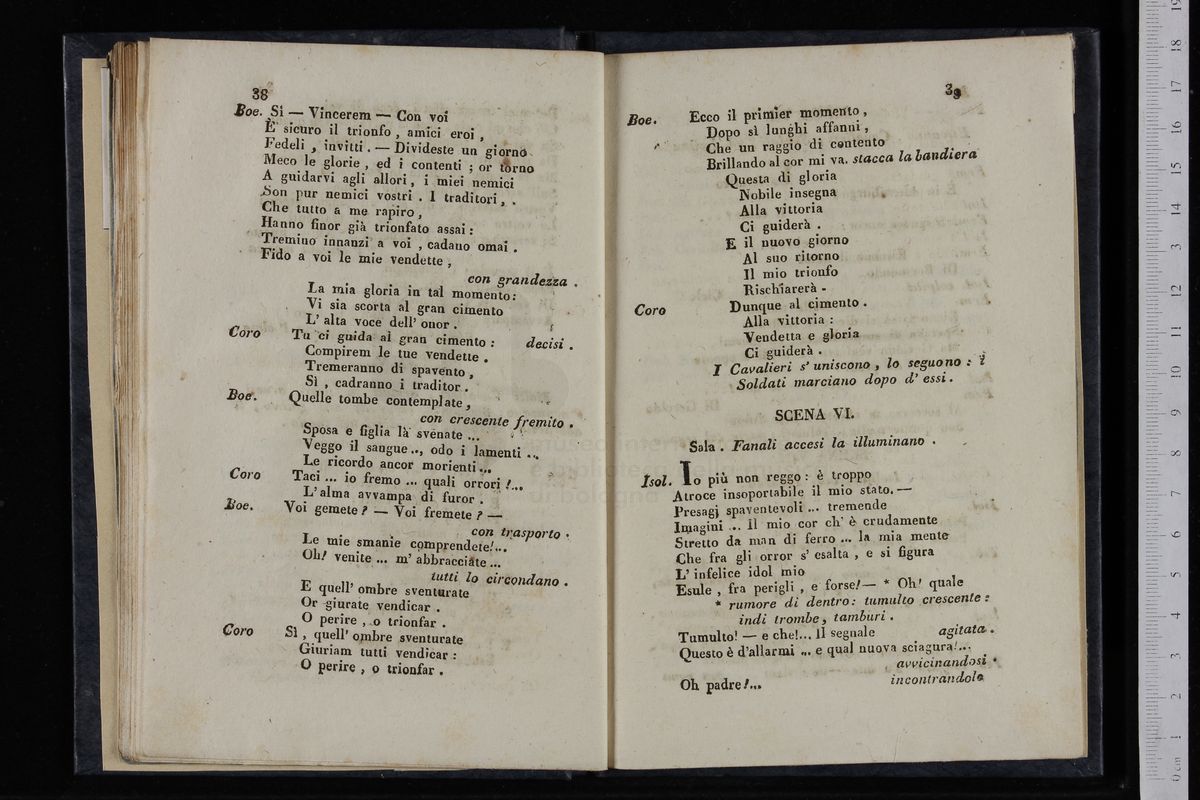 38
Boe. Sì — Vincerem — Con voi
È sicuro il trionfo , amici eroi ,
Fedeli , invitti . — Divideste un giorno
Meco le glorie , ed i contenti ; or torno
A guidarvi agli allori , i miei nemici
Son pur nemici vostri . I traditori ,
Che tutto a me rapiro ,
Hanno finor già trionfato assai :
Tremino innanzi a voi , cadano omai .
Fido a voi le mie vendette ,
con grandezza .
La mia gloria in tal momento :
Vi sia scorta al gran cimento
L' alta voce dell' onor .
Coro Tu ci guida al gran cimento : decisi .
Compirem le tue vendette .
Tremeranno di spavento ,
Sì , cadranno i traditor .
Boe. Quelle tombe contemplate ,
con crescente fremito .
Sposa e figlia là svenate ...
Veggo il sangue .., odo i lamenti ...
Le ricordo ancor morienti ...
Coro Taci ... io fremo ... quali orrori !...
L' alma avvampa di furor .
Boe. Voi gemete ? — Voi fremete ? —
con trasporto .
Le mie smanie comprendete!...
Oh! venite ... m' abbracciate ...
tutti lo circondano .
E quell' ombre sventurate
Or giurate vendicar .
O perire , o trionfar .
Coro Sì , quell' ombre sventurate
Giuriam tutti vendicar :
O perire , o trionfar .
39
Boe. Ecco il primier momento ,
Dopo sì lunghi affanni ,
Che un raggio di contento
Brillando al cor mi va. stacca la bandiera
Questa di gloria
Nobile insegna
Alla vittoria
Ci guiderà .
E il nuovo giorno
Al suo ritorno
Il mio trionfo
Rischiarerà .
Coro Dunque al cimento .
Alla vittoria :
Vendetta e gloria
Ci guiderà .
I Cavalieri s' uniscono , lo seguono : i
Soldati marciano dopo d' essi .
SCENA VI.
Sala . Fanali accesi la illuminano .
Isol. Io più non reggo : è troppo
Atroce insoportabile il mio stato. —
Presagj spaventevoli ... tremende
Imagini ... Il mio cor ch' è crudamente
Stretto da man di ferro ... la mia mente
Che fra gli orror s' esalta , e si figura
L' infelice idol mio
Esule , fra perigli , e forse! — * Oh! quale
* rumore di dentro : tumulto crescente :
indi trombe , tamburi .
Tumulto! — e che!... Il segnale agitata .
Questo è d'allarmi ... e qual nuova sciagura!...
avvicinandosi .
Oh padre!... incontrandolo